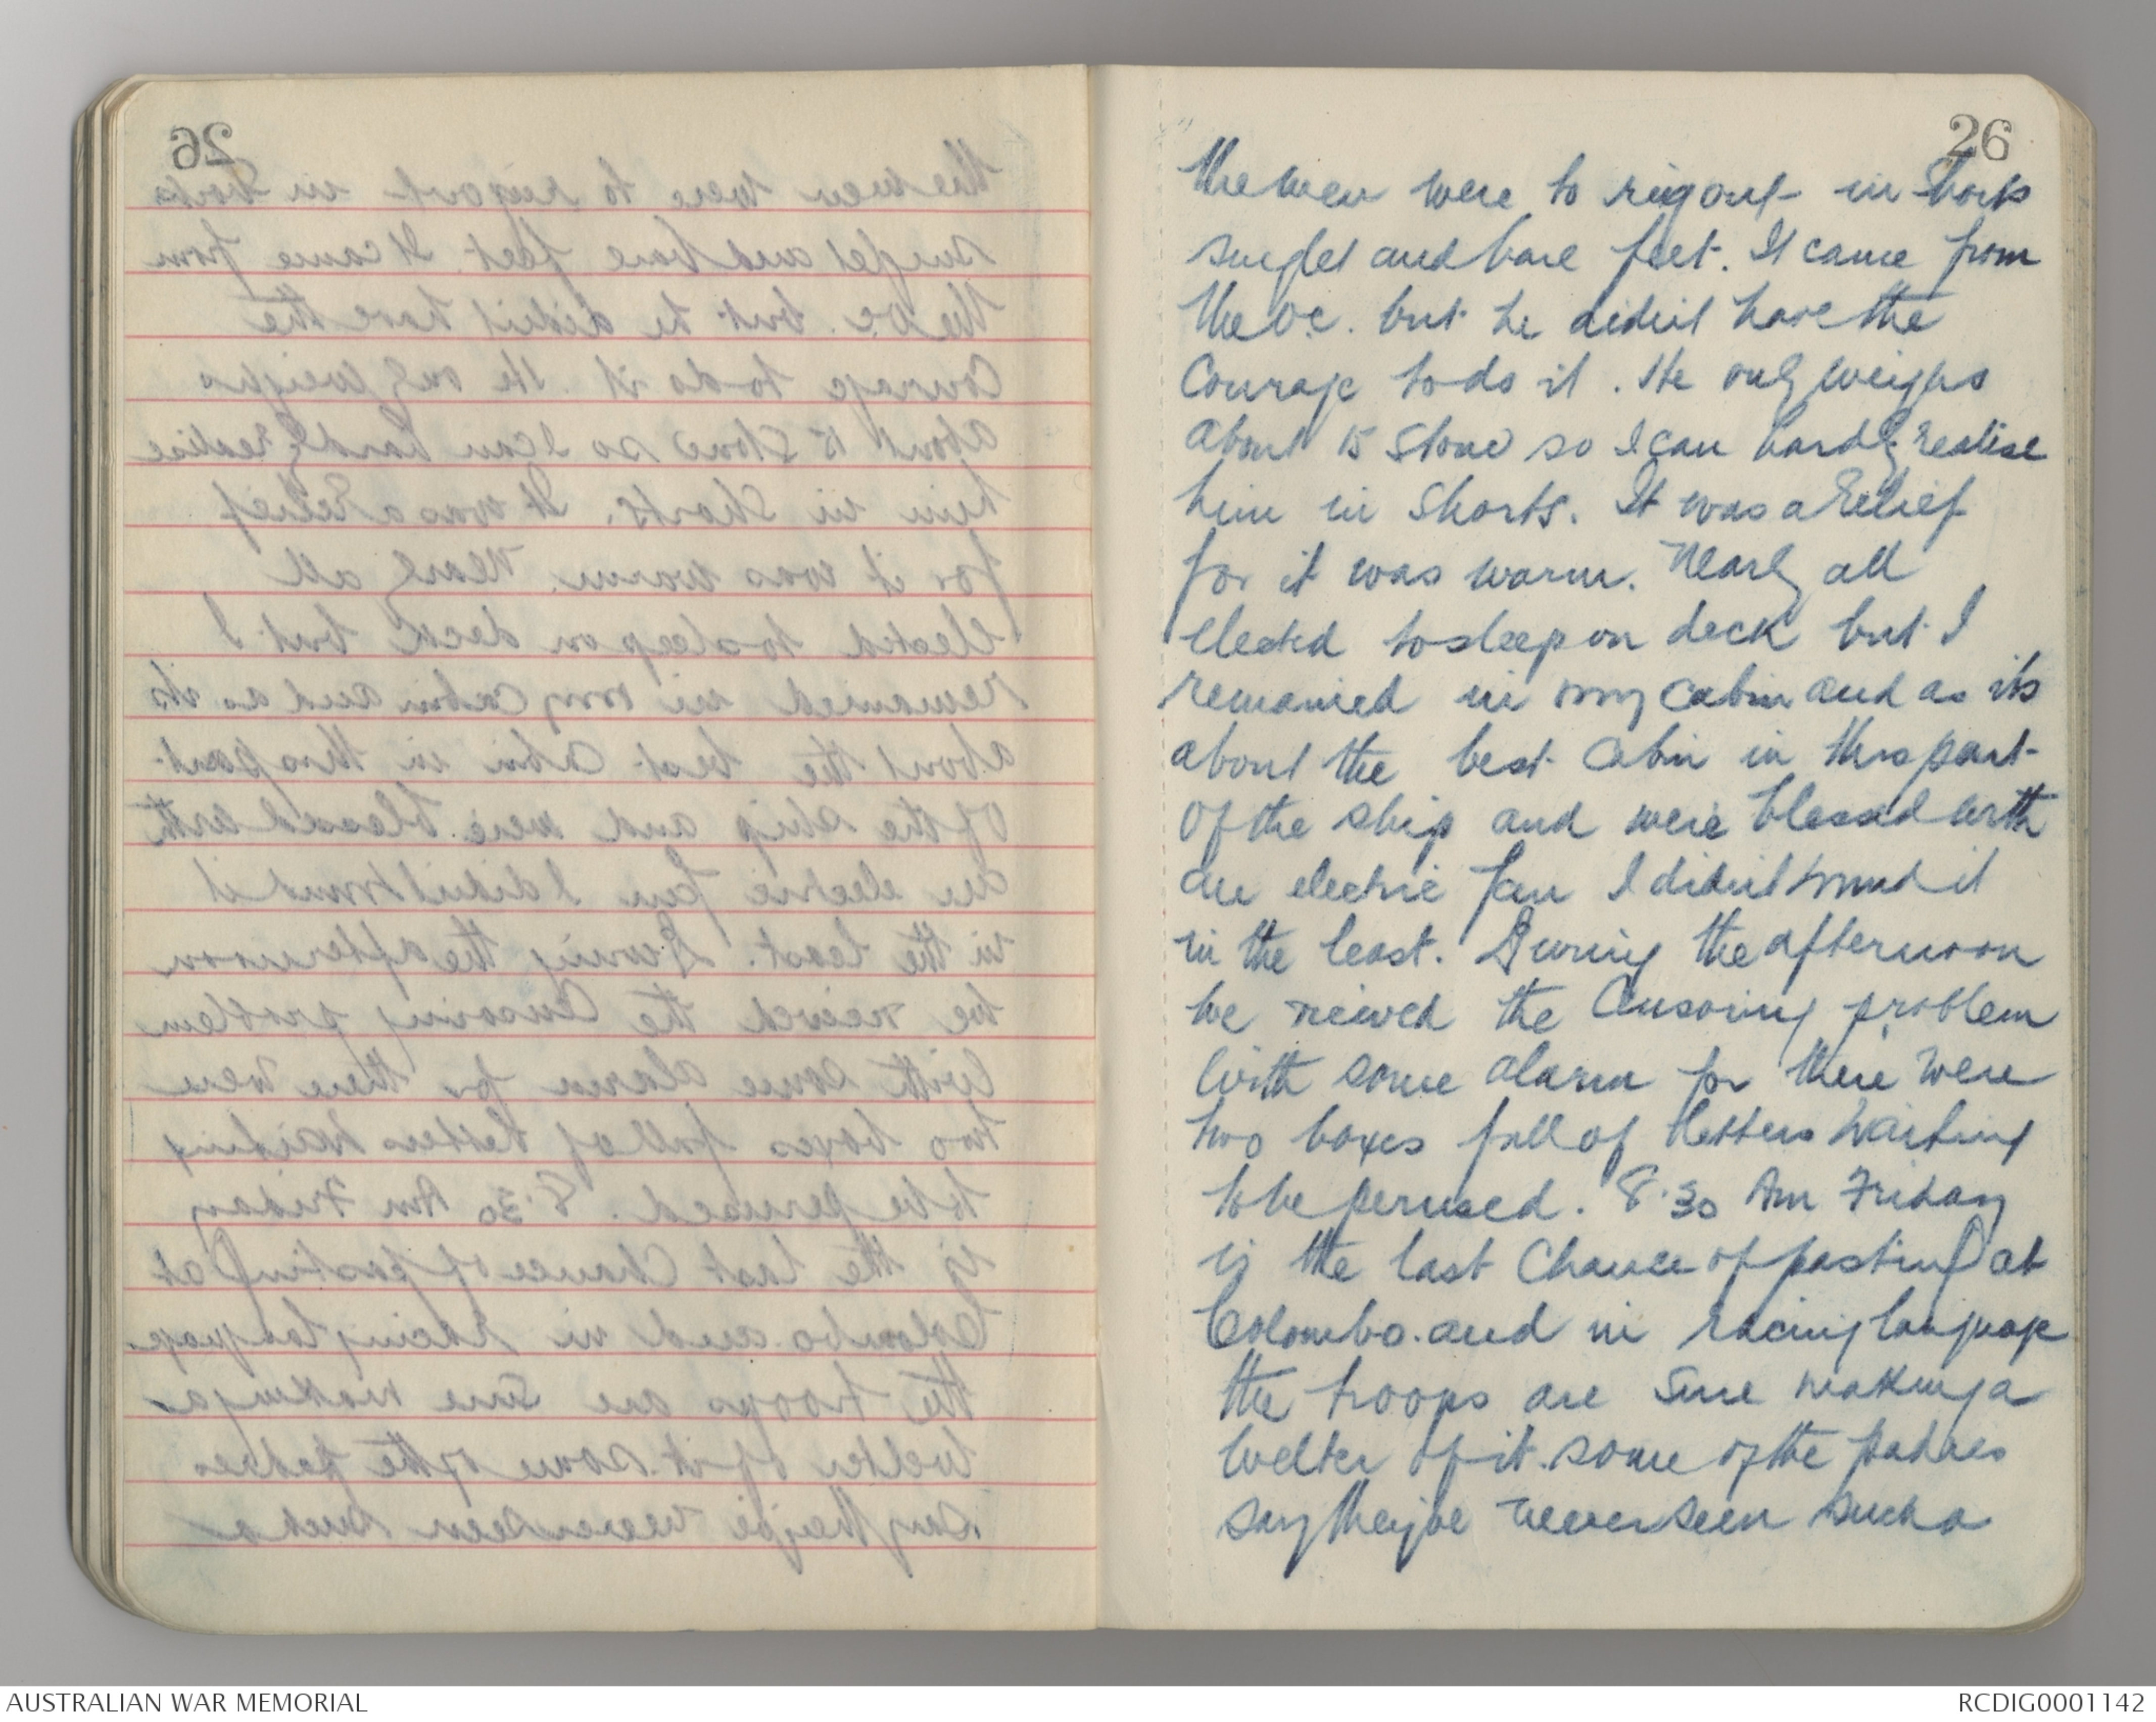 26
the men were to rig out in shorts
singlet and bare feet. It came from
the O.C. but he didn't have the
courage to do it. He only weighs
about 15 stone so I can hardly realise
him in shorts. It was a relief
for it was warm. Nearly all
elected to sleep on deck but I
remained in my cabin and as its
about the best cabin in this part
of the ship and were blessed with
an electric fan I didn't mind it
in the least. During the afternoon
we viewed the censoring problem
with some alarm for there were
two boxes full of letters waiting
to be perused. 8.30 Am Friday
is the last chance of posting at
Colombo. and in racing language
the troops are sure making a
welter of it. some of the padres
say they've never seen such a
AUSTRALIAN WAR MEMORIAL
RCDIG0001142